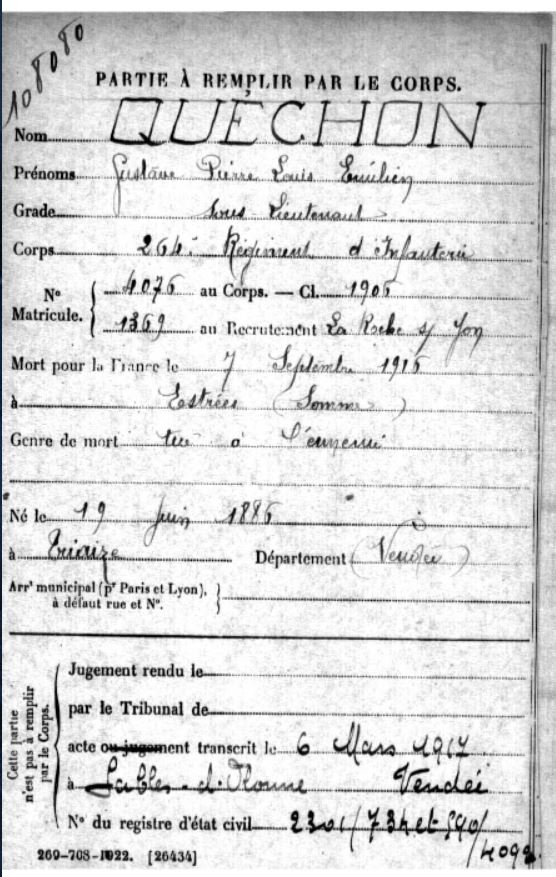 108080
PARTIE À REMPLIR PAR LE CORPS.
Nom QUÉCHON
Prénoms Gustave Pierre Louis Emilien
Grade Sous Lieutenant
Corps 264e Régiment d'Infanterie
No Matricule. { 4076 au Corps. — Cl. 1906
1369 au Recrutement La Roche s/ Yon
Mort pour la France le 7 Septembre 1916
à Estrées (Somme)
Genre de mort tué à l'ennemi
Né le 19 Juin 1886
à Triaize Département (Vendée)
Arrt municipal (pr Paris et Lyon),
à défaut rue et No. }
Cette partie n'est pas à remplir par le Corps.
Jugement rendu le
par le Tribunal de
acte ou jugement transcrit le 6 Mars 1917
à Sables-d'Olonne Vendée
No du registre d'état civil 2301/734 et
/4092
269-708-1922. [26434]